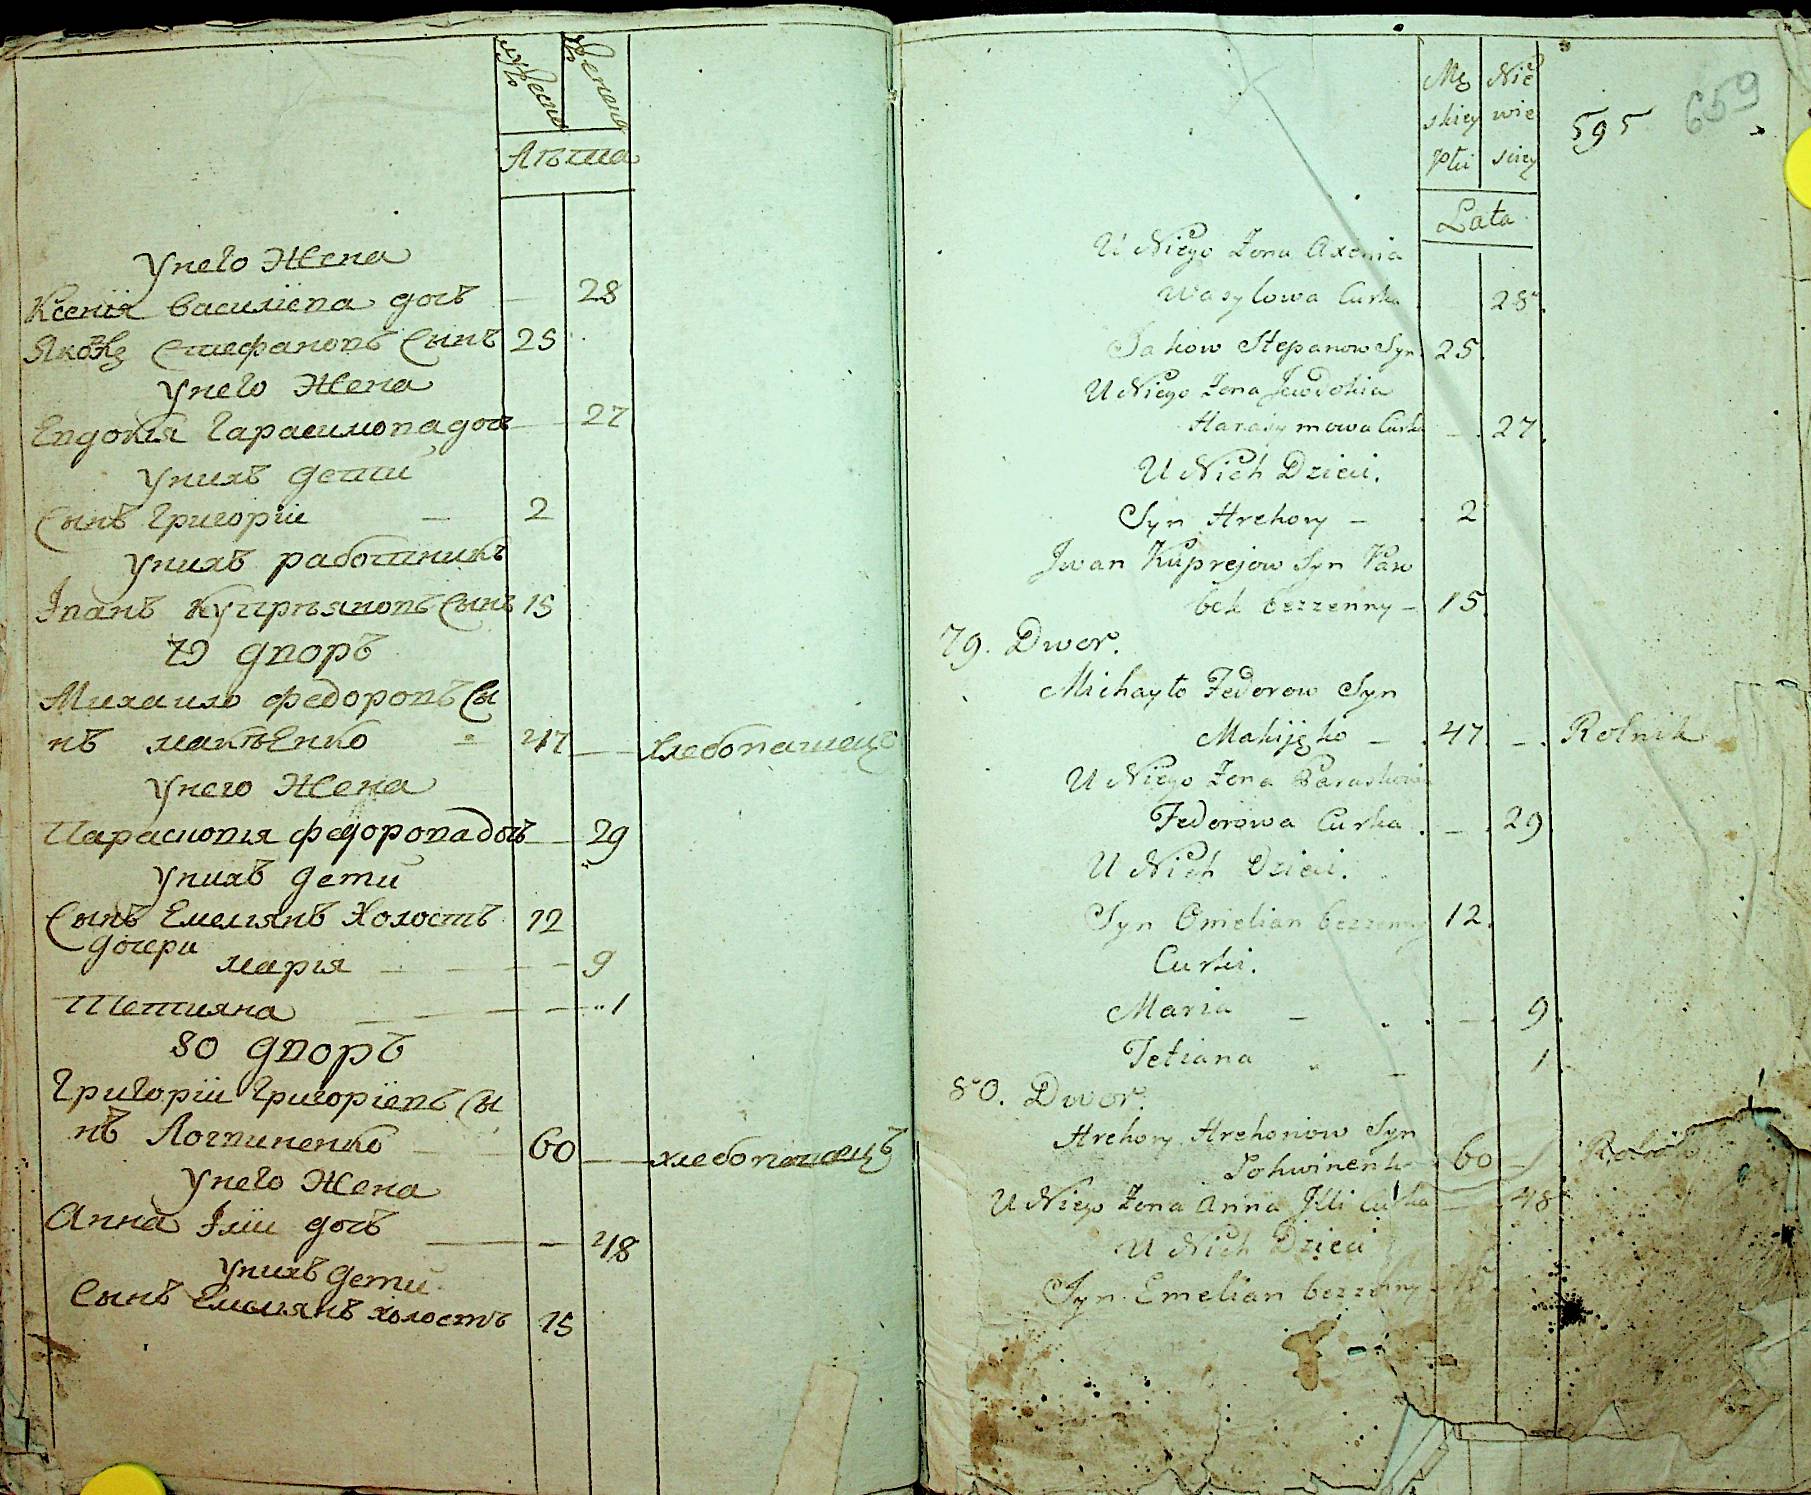 мужеска
женска
Лѣта
У него жена
Ксенія василіева дочъ — 28
Яковъ Стефановъ Сынъ 25
У него жена
Евдокія Гарасимова дочъ — 27
У нихъ дети
Сынъ Григоріи — 2
У нихъ работникъ
Іванъ Купрѣяновъ Сынъ 15
79 дворъ
Михаило федоровъ Сы
нъ макѣенко - 47 — хлебопашецъ
У него жена
Парасковія федорова дочъ — 29
У нихъ дети
Сынъ Емелиянъ Холостъ 12
дочери
марія — 9
Тетияна — 1
80 дворъ
Григоріи Григоріевъ Сы
нъ Логвиненко — 60 — хлебопашецъ
У него жена
Анна Іліи дочъ — 48
У нихъ дети
Сынъ Емелиянъ холостъ 15
Mę Nie
skiey wie
płci sciey
595 659
Lata
U Niego Żona Axenia
Wasylowa Curka 28
Jakow Stepanow Syn 25
U Niego Żona Jewdokia
Harasymowa Curka — 27
U Nich Dzieci.
Syn Hrehory — 2
Jwan Kuprejow Syn Paro
bek bezzenny — 15
79. Dwor.
Michayło Fedorow Syn
Makijęko — 47 — Rolnik
U Niego Żona Paraskowia
Fedorowa Curka — 29
U Nich Dzieci.
Syn Omelian bezzenny 12.
Curki.
Maria — 9
Tetiana — 1
80. Dwor.
Hrehory Hrehoriow Syn
Lohwinenko 60 — Rolnik
U Niego Żona Anna Jlli Curka — 48
U Nich Dzieci
Syn Emelian bezzenny 15